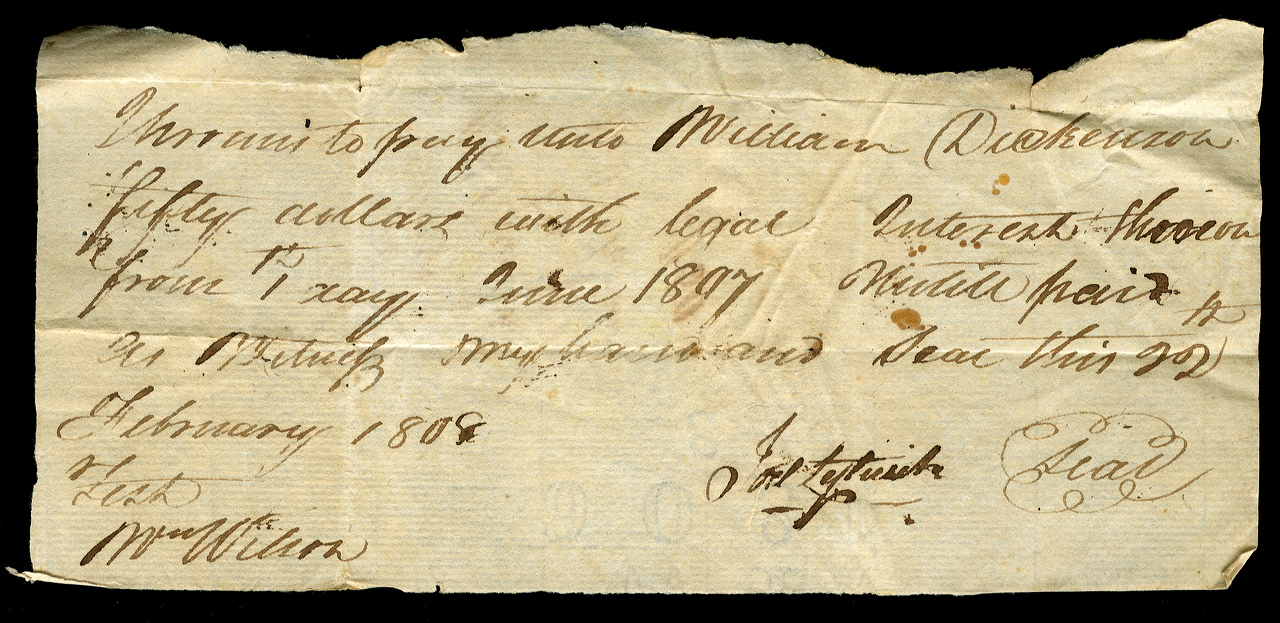 I Promis to pay unto William Dickenson
fifty dollars with legal Interest thereon
from 1st day June 1807 Untill paid
As Witness my hand and Seal this 22d
February 1808
Test
Wm Wilson
Seal